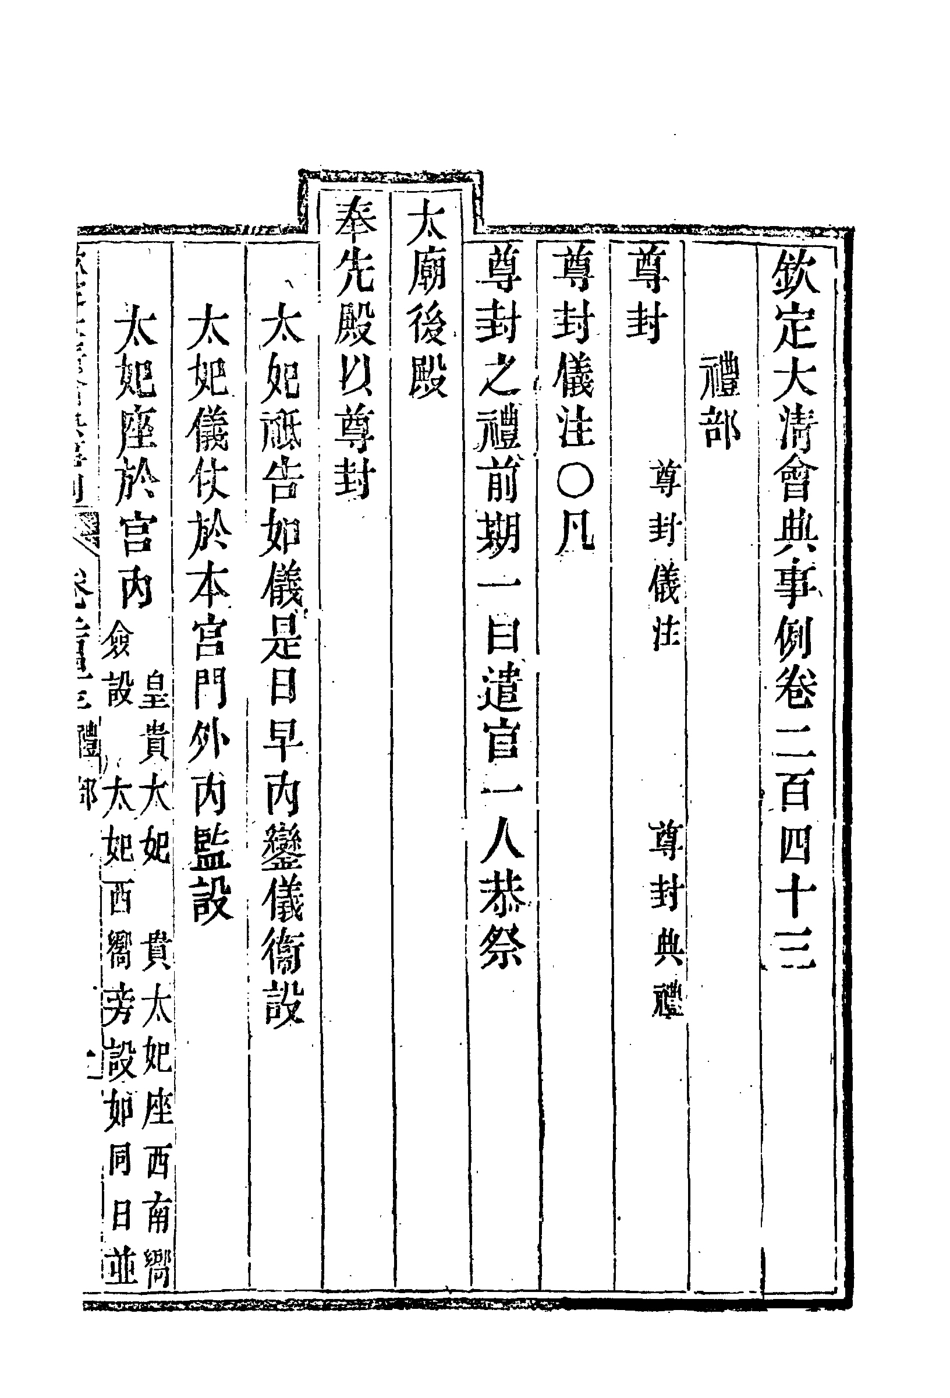 欽定大清會典事例卷二百四十三
禮部
尊封 尊封儀注 尊封典禮
尊封儀注〇凡
尊封之禮前期一日遣官一人恭祭
太廟後殿
奉先殿以尊封
太妃祗告如儀是日早內鑾儀衞設
太妃儀仗於本宮門外內監設
太妃座於宮內
皇貴太妃 貴太妃座西南嚮
僉設 太妃西嚮旁設如同日並
禮部 一